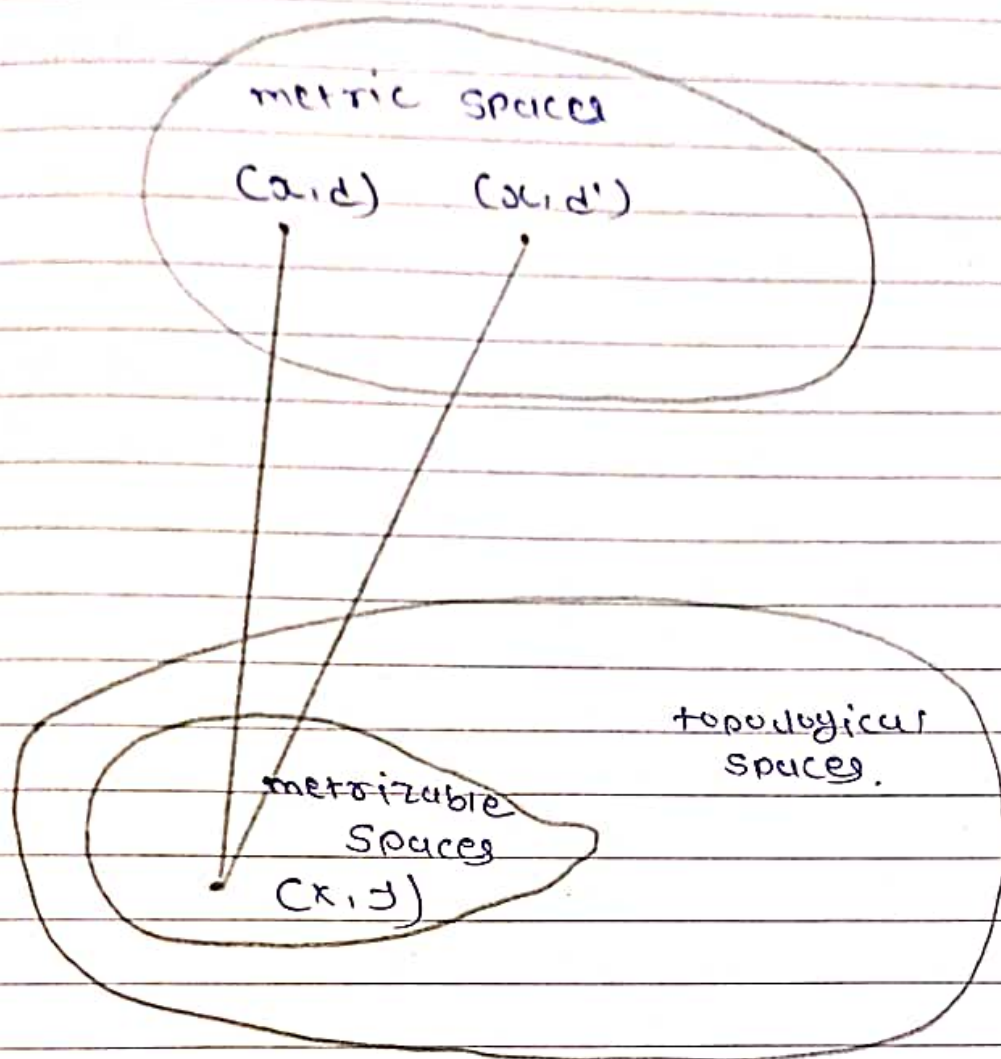 metric spaces
(x, d) (x, d')
topological
spaces.
metrizable
spaces
(x, y)